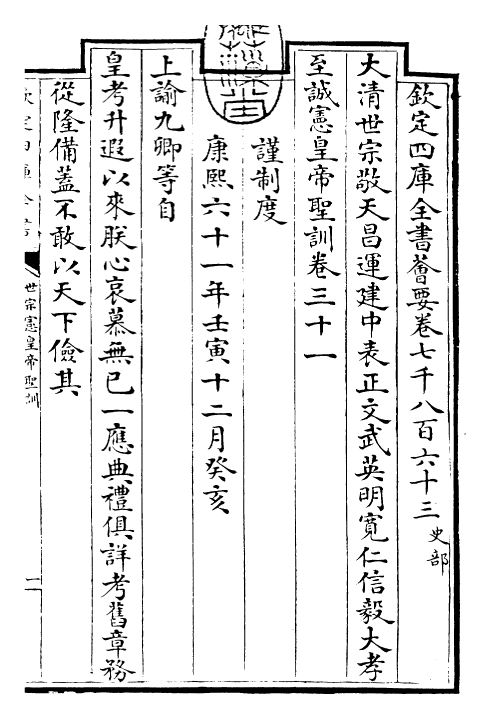 欽定四庫全書薈要卷七千八百六十三 史部
大清世宗敬天昌運建中表正文武英明寬仁信毅大孝
至誠憲皇帝聖訓卷三十一
謹制度
康熙六十一年壬寅十二月癸亥
上諭九卿等自
皇考升遐以來朕心哀慕無已一應典禮俱詳考舊章務
從隆備蓋不敢以天下儉其
欽定四庫全書
世宗憲皇帝聖訓